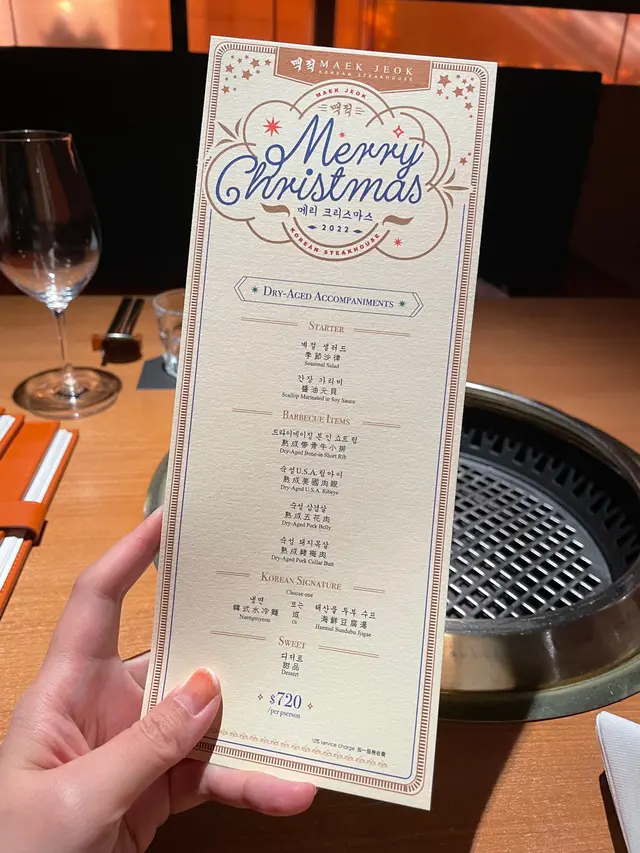 맥적 MAEK JEOK
KOREAN STEAKHOUSE
MAEK JEOK
맥적
Merry
Christmas
메리 크리스마스
2022
KOREAN STEAKHOUSE
DRY-AGED ACCOMPANIMENTS
STARTER
계절 샐러드
季節沙律
Seasonal Salad
간장 가리비
醬油元貝
Scallop Marinated in Soy Sauce
BARBECUE ITEMS
드라이에이징 본 인 쇼트 립
熟成帶骨牛小排
Dry-Aged Bone-in Short Rib
숙성 U.S.A. 립아이
熟成美國肉眼
Dry-Aged U.S.A. Ribeye
숙성 삼겹살
熟成五花肉
Dry-Aged Pork Belly
숙성 돼지목살
熟成豬梅肉
Dry-Aged Pork Collar Butt
KOREAN SIGNATURE
Choose one
냉면 또는 해산물 두부 수프
韓式水冷麵 或 海鮮豆腐湯
Naengmyeon Or Haemul Sundubu Jjigae
SWEET
디저트
甜品
Dessert
$720
/per person
10% service charge 加一服務收費